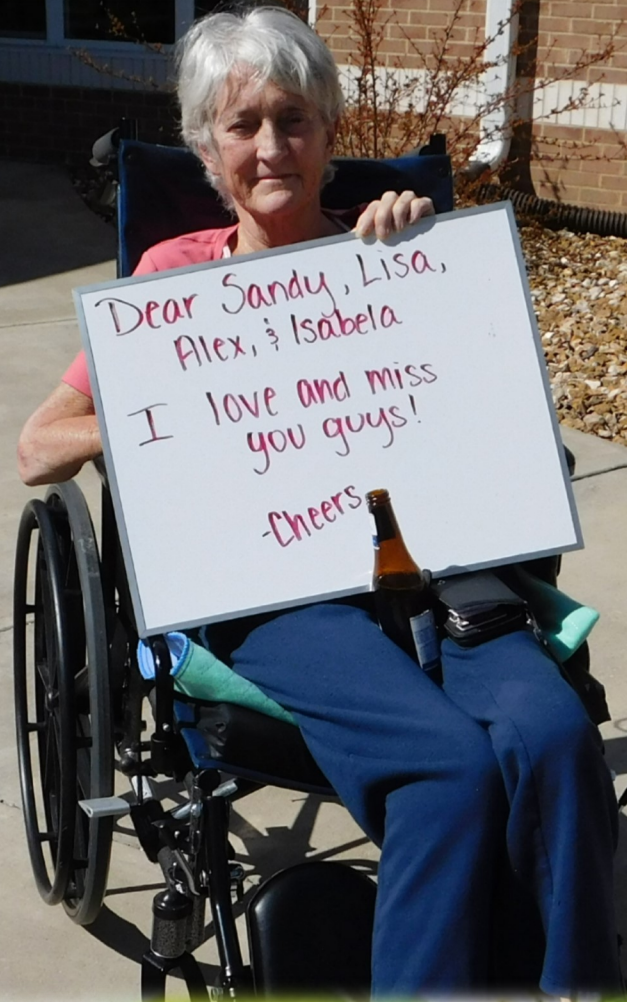 Dear Sandy, Lisa,
Alex, & Isabela
I love and miss
you guys!
-Cheers